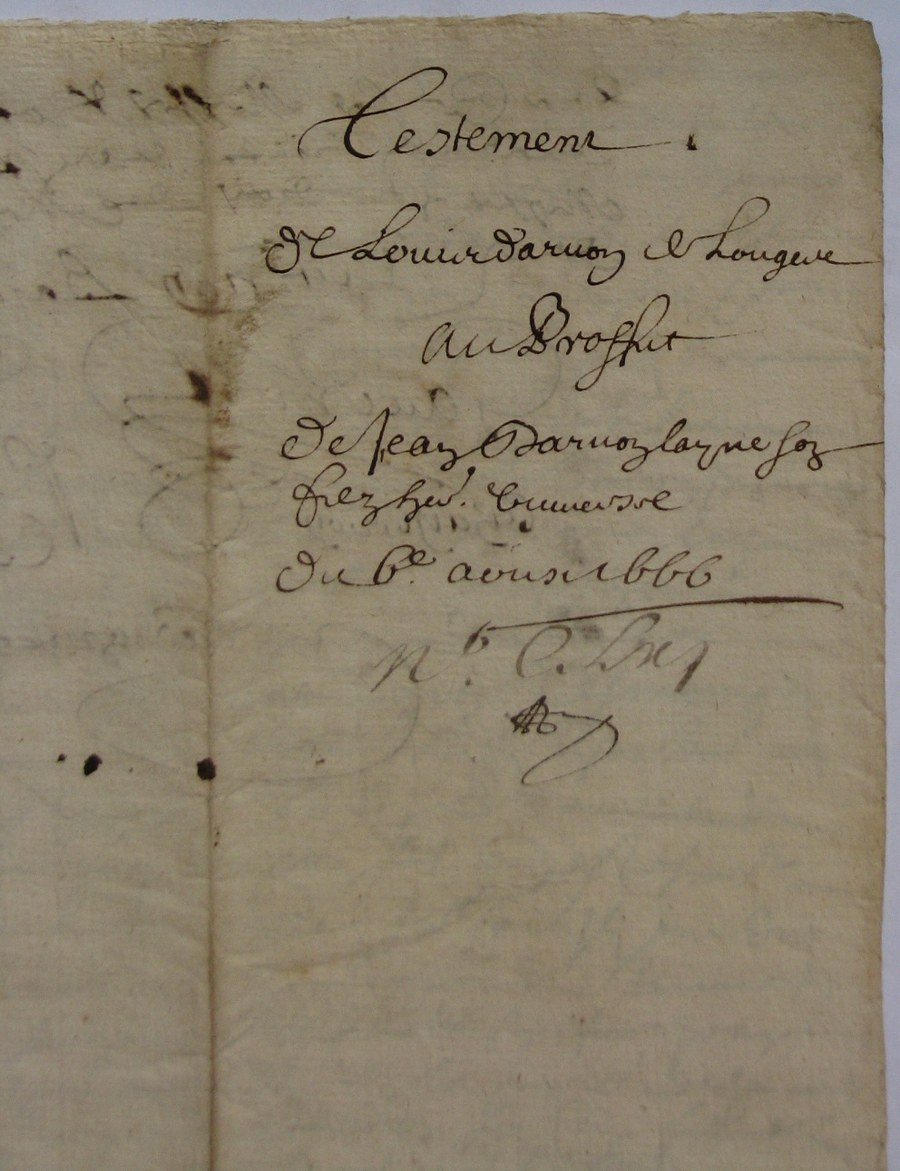 Testement
de Louis darnon de Longeve
au Proffit
de Jean Darnon layne son
herr. universel
du 6e. aoust 1666